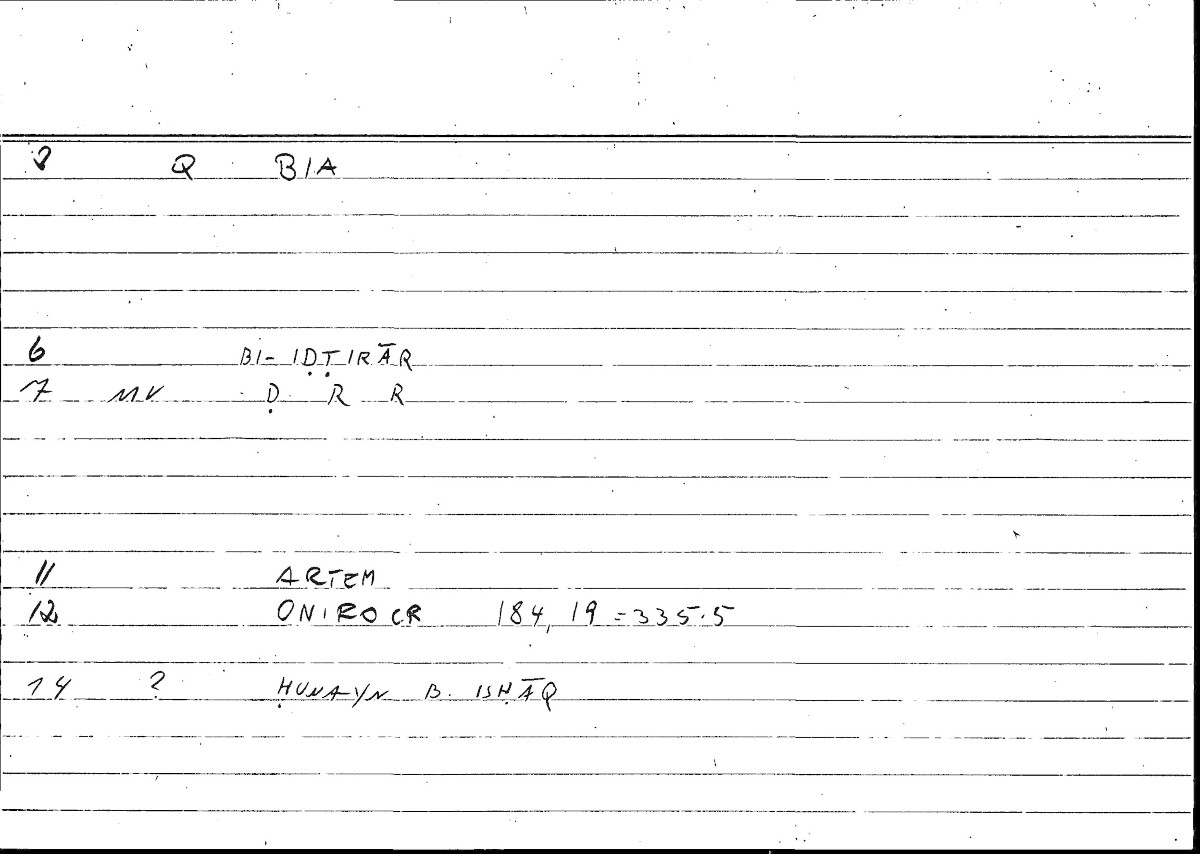 Q BIA
6 BI- IḌṬIRĀR
7 MV Ḍ R R
11 ARTEM
12 ONIROCR 184, 19 = 335.5
14 ? ḤUNAYN B. ISḤĀQ